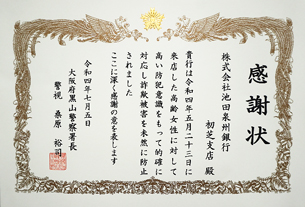 感謝状
株式会社池田泉州銀行
初芝支店 殿
貴行は令和四年五月二十三日に
来店した高齢女性に対して
高い防犯意識をもって的確に
対応し詐欺被害を未然に防止
されました
ここに深く感謝の意を表します
令和四年七月五日
大阪府黒山警察署長
警視 桑原 裕司